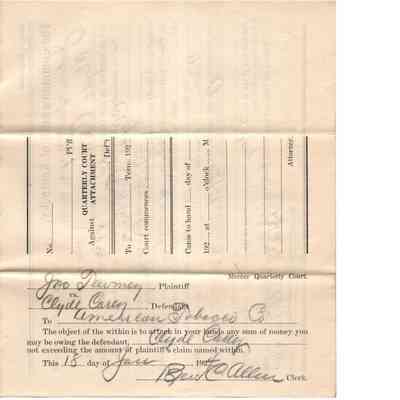 No.
Pl'ff
QUARTERLY COURT
ATTACHMENT
Against
Def't
To Term, 192
Court commences
Came to hand day of
192 at o'clock M
Attorney.
Mercer Quarterly Court.
Plaintiff
vs
Clyde Carey Defendant
To American Tobacco Co
The object of the within is to attach in your hands any sum of money you
may be owing the defendant, Clyde Carey
not exceeding the amount of plaintiff's claim named within.
This 18 day of Jan 192
Allen Clerk.